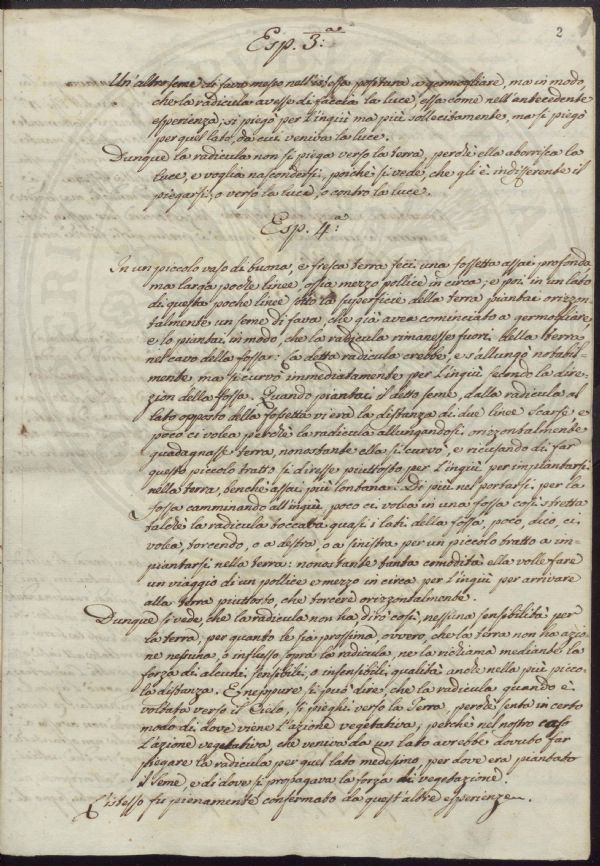 2
Esp. 3.ª
Un'altro seme di fava messo nell'istessa positura a germogliare, ma in modo,
che la radicula avesse di faccia la luce, essa come nell'antecedente
esperienza, si piegò per l'ingiù ma più sollecitamente, ma si piegò
per quel lato, da cui veniva la luce.
Dunque la radicula non si piega verso la terra, perchè ella aborrisca la
luce, e voglia nascondersi, poichè si vede, che gli è indifferente il
piegarsi, o verso la luce, o contro la luce.
Esp. 4.ª
In un piccolo vaso di buona, e fresca terra feci una fossetta assai profonda,
ma larga poche linee, ossia mezzo pollice in circa; e poi in un lato
di questa poche linee sotto la superficie della terra piantai orizzon-
talmente un seme di fava, che già avea cominciato a germogliare,
e lo piantai in modo, che la radicula rimanesse fuori della terra
nel cavo della fossa: la detta radicula crebbe, e s'allungò notabil-
mente ma si curvò immediatamente per l'ingiù secondo la dire-
zion della fossa. Quando piantai il detto seme, dalla radicula al
lato opposto della fossetta vi era la distanza di due linee scarse, e
poco ci volea perchè la radicula allungandosi orizzontalmente
guadagnasse terra, nonostante ella si curvò, e ricusando di far
questo piccolo tratto si diresse piuttosto per l'ingiù per implantarsi
nella terra, benchè assai più lontana. Di più nel portarsi per la
fossa camminando all'ingiù, poco ci volea in una fossa così stretta
talchè la radicula toccava quasi i lati della fossa, poco, dico, ci
volea, torcendo, o a destra, o a sinistra per un piccolo tratto a im-
piantarsi nella terra: nonostante tanta comodità ella volle fare
un viaggio di un pollice e mezzo in circa per l'ingiù per arrivare
alla terra piuttosto, che torcere orizzontalmente.
Dunque si vede, che la radicula non ha, dirò così, nessuna sensibilità per
la terra, per quanto le sia prossima, ovvero, che la terra non ha azio-
ne nessuna, o influsso sopra la radicula, ne la richiama mediante la
forza di alcune sensibili, o insensibili qualità anche nella più picco-
la distanza. E neppure si può dire, che la radicula quando è
voltata verso il Cielo, si pieghi verso la Terra, perchè senta in certo
modo di dove viene l'azione vegetativa; perchè nel nostro caso
l'azione vegetativa, che veniva da un lato avrebbe dovuto far
piegare la radicula per quel lato medesimo, per dove era piantato
il seme, e di dove si propagava la forza di vegetazione.
L'istesso fu pienamente confermato da quest'altre esperienze.